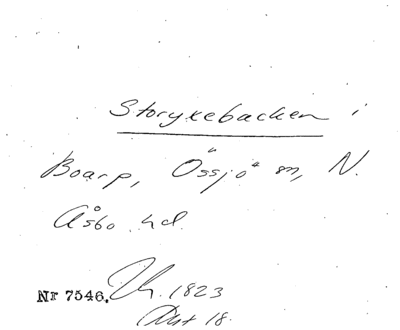 Storykebacken i
Boarp, Össjö sn, N.
Åsbo hd.
Nr 7546. 1823
18.